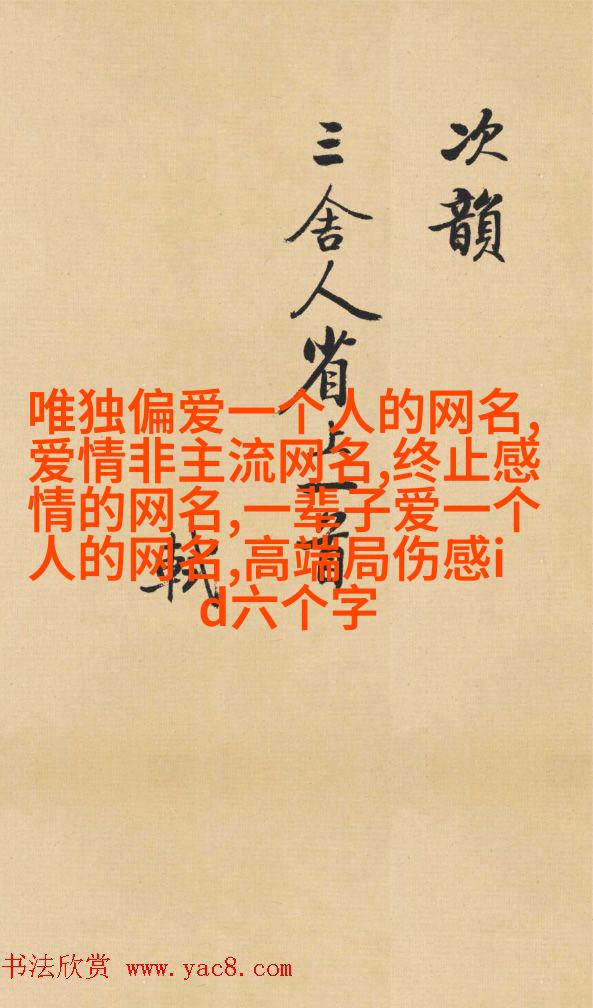 次韻
三舍人省上一首
軾
唯独偏爱一个人的网名,
爱情非主流网名,终止感
情的网名,一辈子爱一个
人的网名,高端局伤感i
d六个字
书法欣赏 www.yac8.com